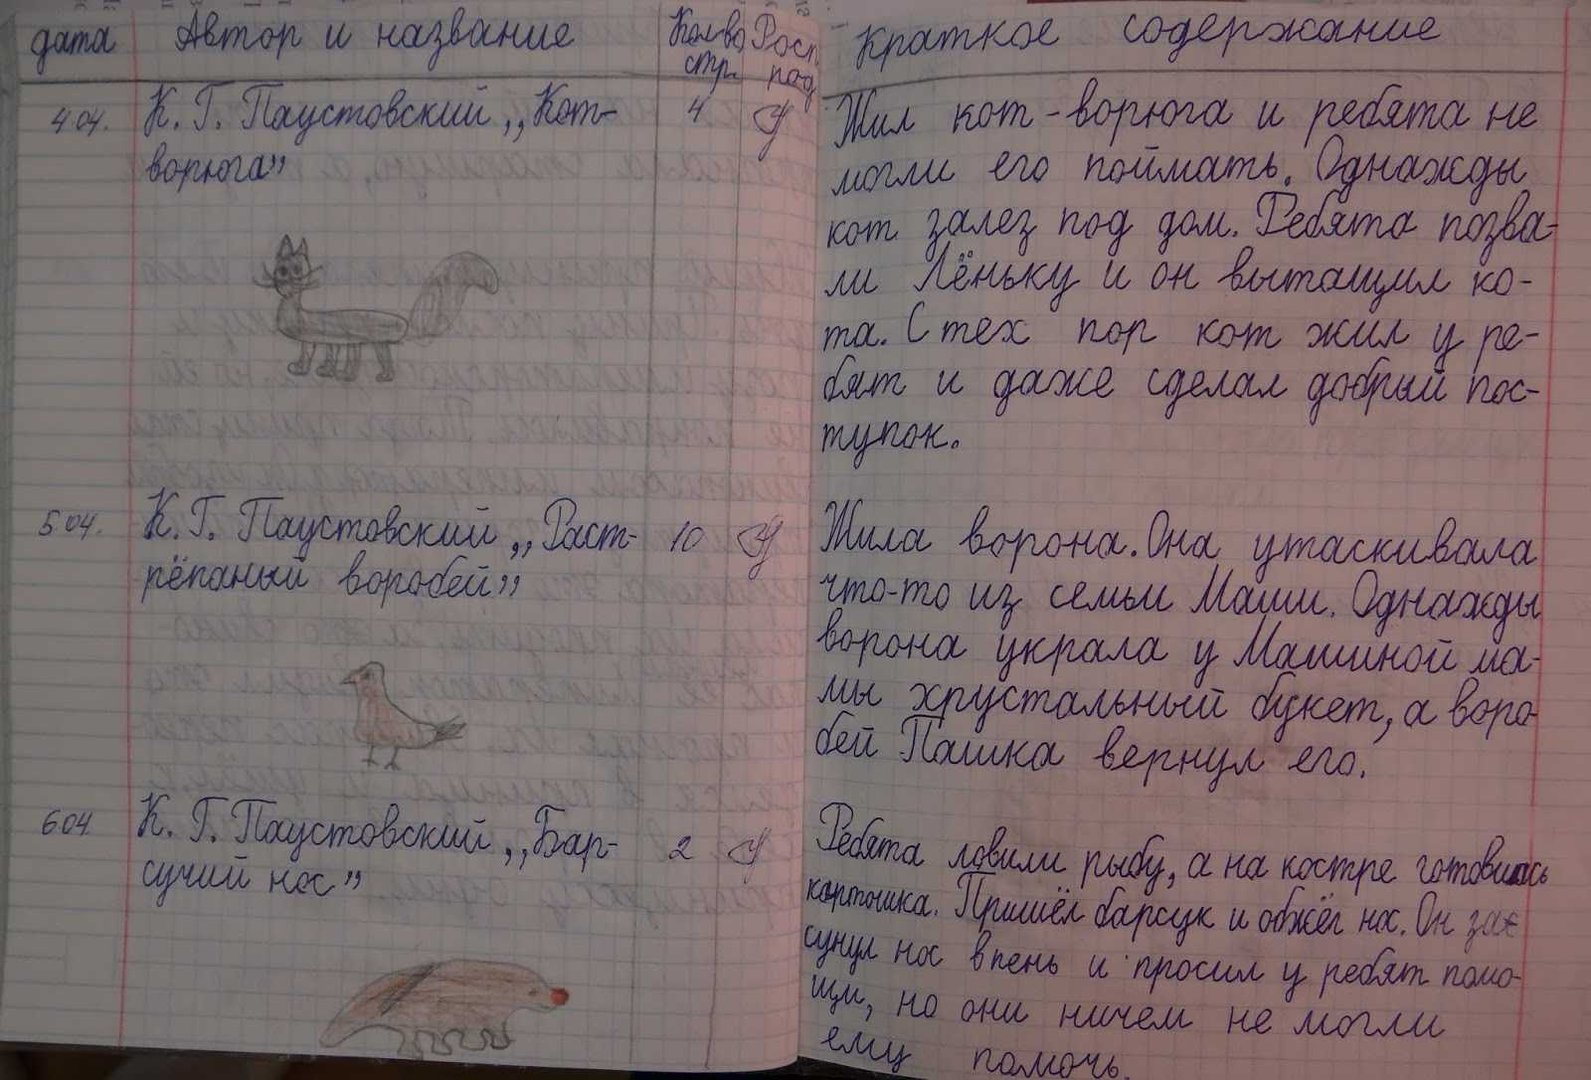 дата Автор и название Кол-во Росп. Краткое содержание
стр. под
4 04. К. Г. Паустовский „Кот- 4
ворюга”
Жил кот-ворюга и ребята не
могли его поймать. Однажды
кот залез под дом. Ребята позва-
ли Лёньку и он вытащил ко-
та. С тех пор кот жил у ре-
бят и даже сделал добрый пос-
тупок.
5 04. К. Г. Паустовский „Раст- 10
рёпаный воробей”
Жила ворона. Она утаскивала
что-то из семьи Маши. Однажды
ворона украла у Машиной ма-
мы хрустальный букет, а воро
бей Пашка вернул его.
6 04 К. Г. Паустовский „Бар- 2
сучий нос”
Ребята ловили рыбу, а на костре готовилась
картошка. Пришёл барсук и обжёг нос. Он
сунул нос в пень и просил у ребят помо-
щи, но они ничем не могли
ему помочь.